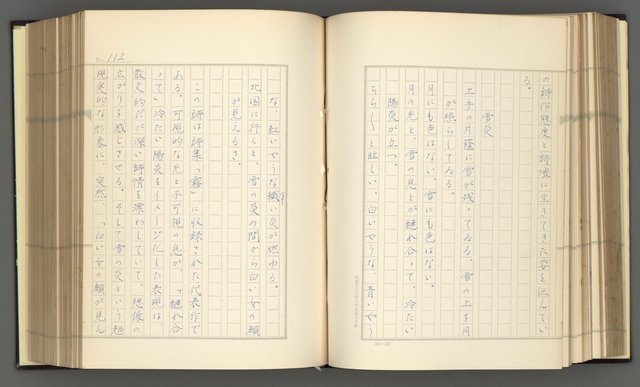 の詩作態度と詩壇に生きてきた姿を伝えてい
る。
雪炎
土手の片蔭に雪が残ってゐる。雪の上を月
が照らしてゐる。
月にも色はない。雪にも色はない。
月の光と、雪の息とが縺れ合って、冷たい
陽炎が立つ。
ちらちらと眩しい、白いやうな、青いやう
No. 112
な、紅いやうな纖い炎が燃ゆる。
北国に行くと、雪の炎の間から白い女の顔
が見えるさ。
この詩は詩集「霧」に収録された代表作で
ある。可視的な光と不可視の息が、「縺れ合
って」冷たい陽炎をイメージ化した表現は、
散文的だが深い詩情を漂わしていて、想像の
広がりを感じさせる。そして雪の炎という超
現実的な形象に、突然、「白い女の顔が見え